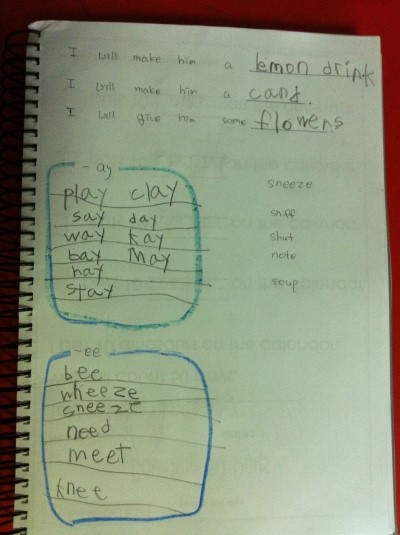 I will make him a lemon drink
I will make him a card.
I will give him some flowers
-ay
play clay
say day
way kay
bay May
hay
stay
sneeze
sniff
shut
note
soup
-ee
bee
wheeze
sneeze
need
meet
knee